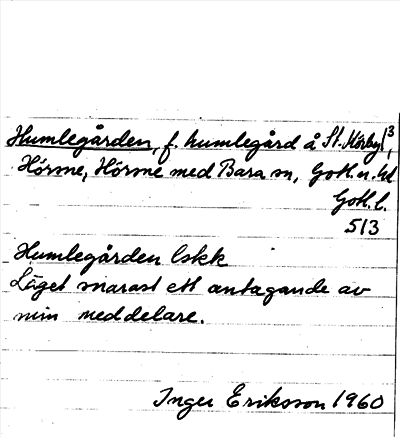 Humlegården, f. humlegård å St. Hörby 1³,
Hörsne, Hörsne med Bara sn, Goth. n. hd
Gotl. l.
513
Humlegården lskk
Läget snarast ett antagande av
min meddelare.
Inger Eriksson 1960